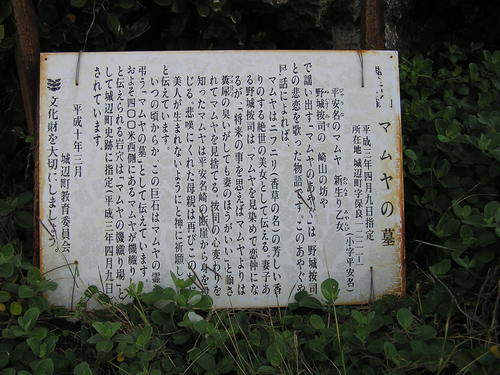 マムヤの墓
平成三年四月九日指定
所在地 城辺町字保良一一二一 (小字平安名)
平安名のマムヤ 新生り乙女
野城按司の 崎山の坊や
で謡い出す「マムヤのあやぐ」は、野城按司
との悲恋を歌った物語です。このあやぐや
口話によれば、
マムヤはニフニリ(香草の名)の芳しい香
りのする絶世の美女として伝える。妻子あ
る野城按司は、マムヤを見染めて恋仲にな
るが、「将来の事を思えばマムヤよりは
糞尿の臭いがしても妻のほうがいい」と諭さ
れてマムヤを見捨てる。按司の心変わりを
知ったマムヤは平安名崎の断崖から身を投
じる。悲嘆にくれた母親は再びこの
美人が生まれないようにと神に祈願し
と伝えています。
いつの頃からか、この巨石はマムヤの霊を
弔う「マムヤの墓」として伝えています。
およそ四〇〇米西側にあるマムヤが機織り
と伝えられる岩穴は「マムヤの機織り場」と
して城辺町史跡に指定(平成三年四月九日)
されています。
平成十年三月
城辺町教育委員会
文化財を大切にしましょう。